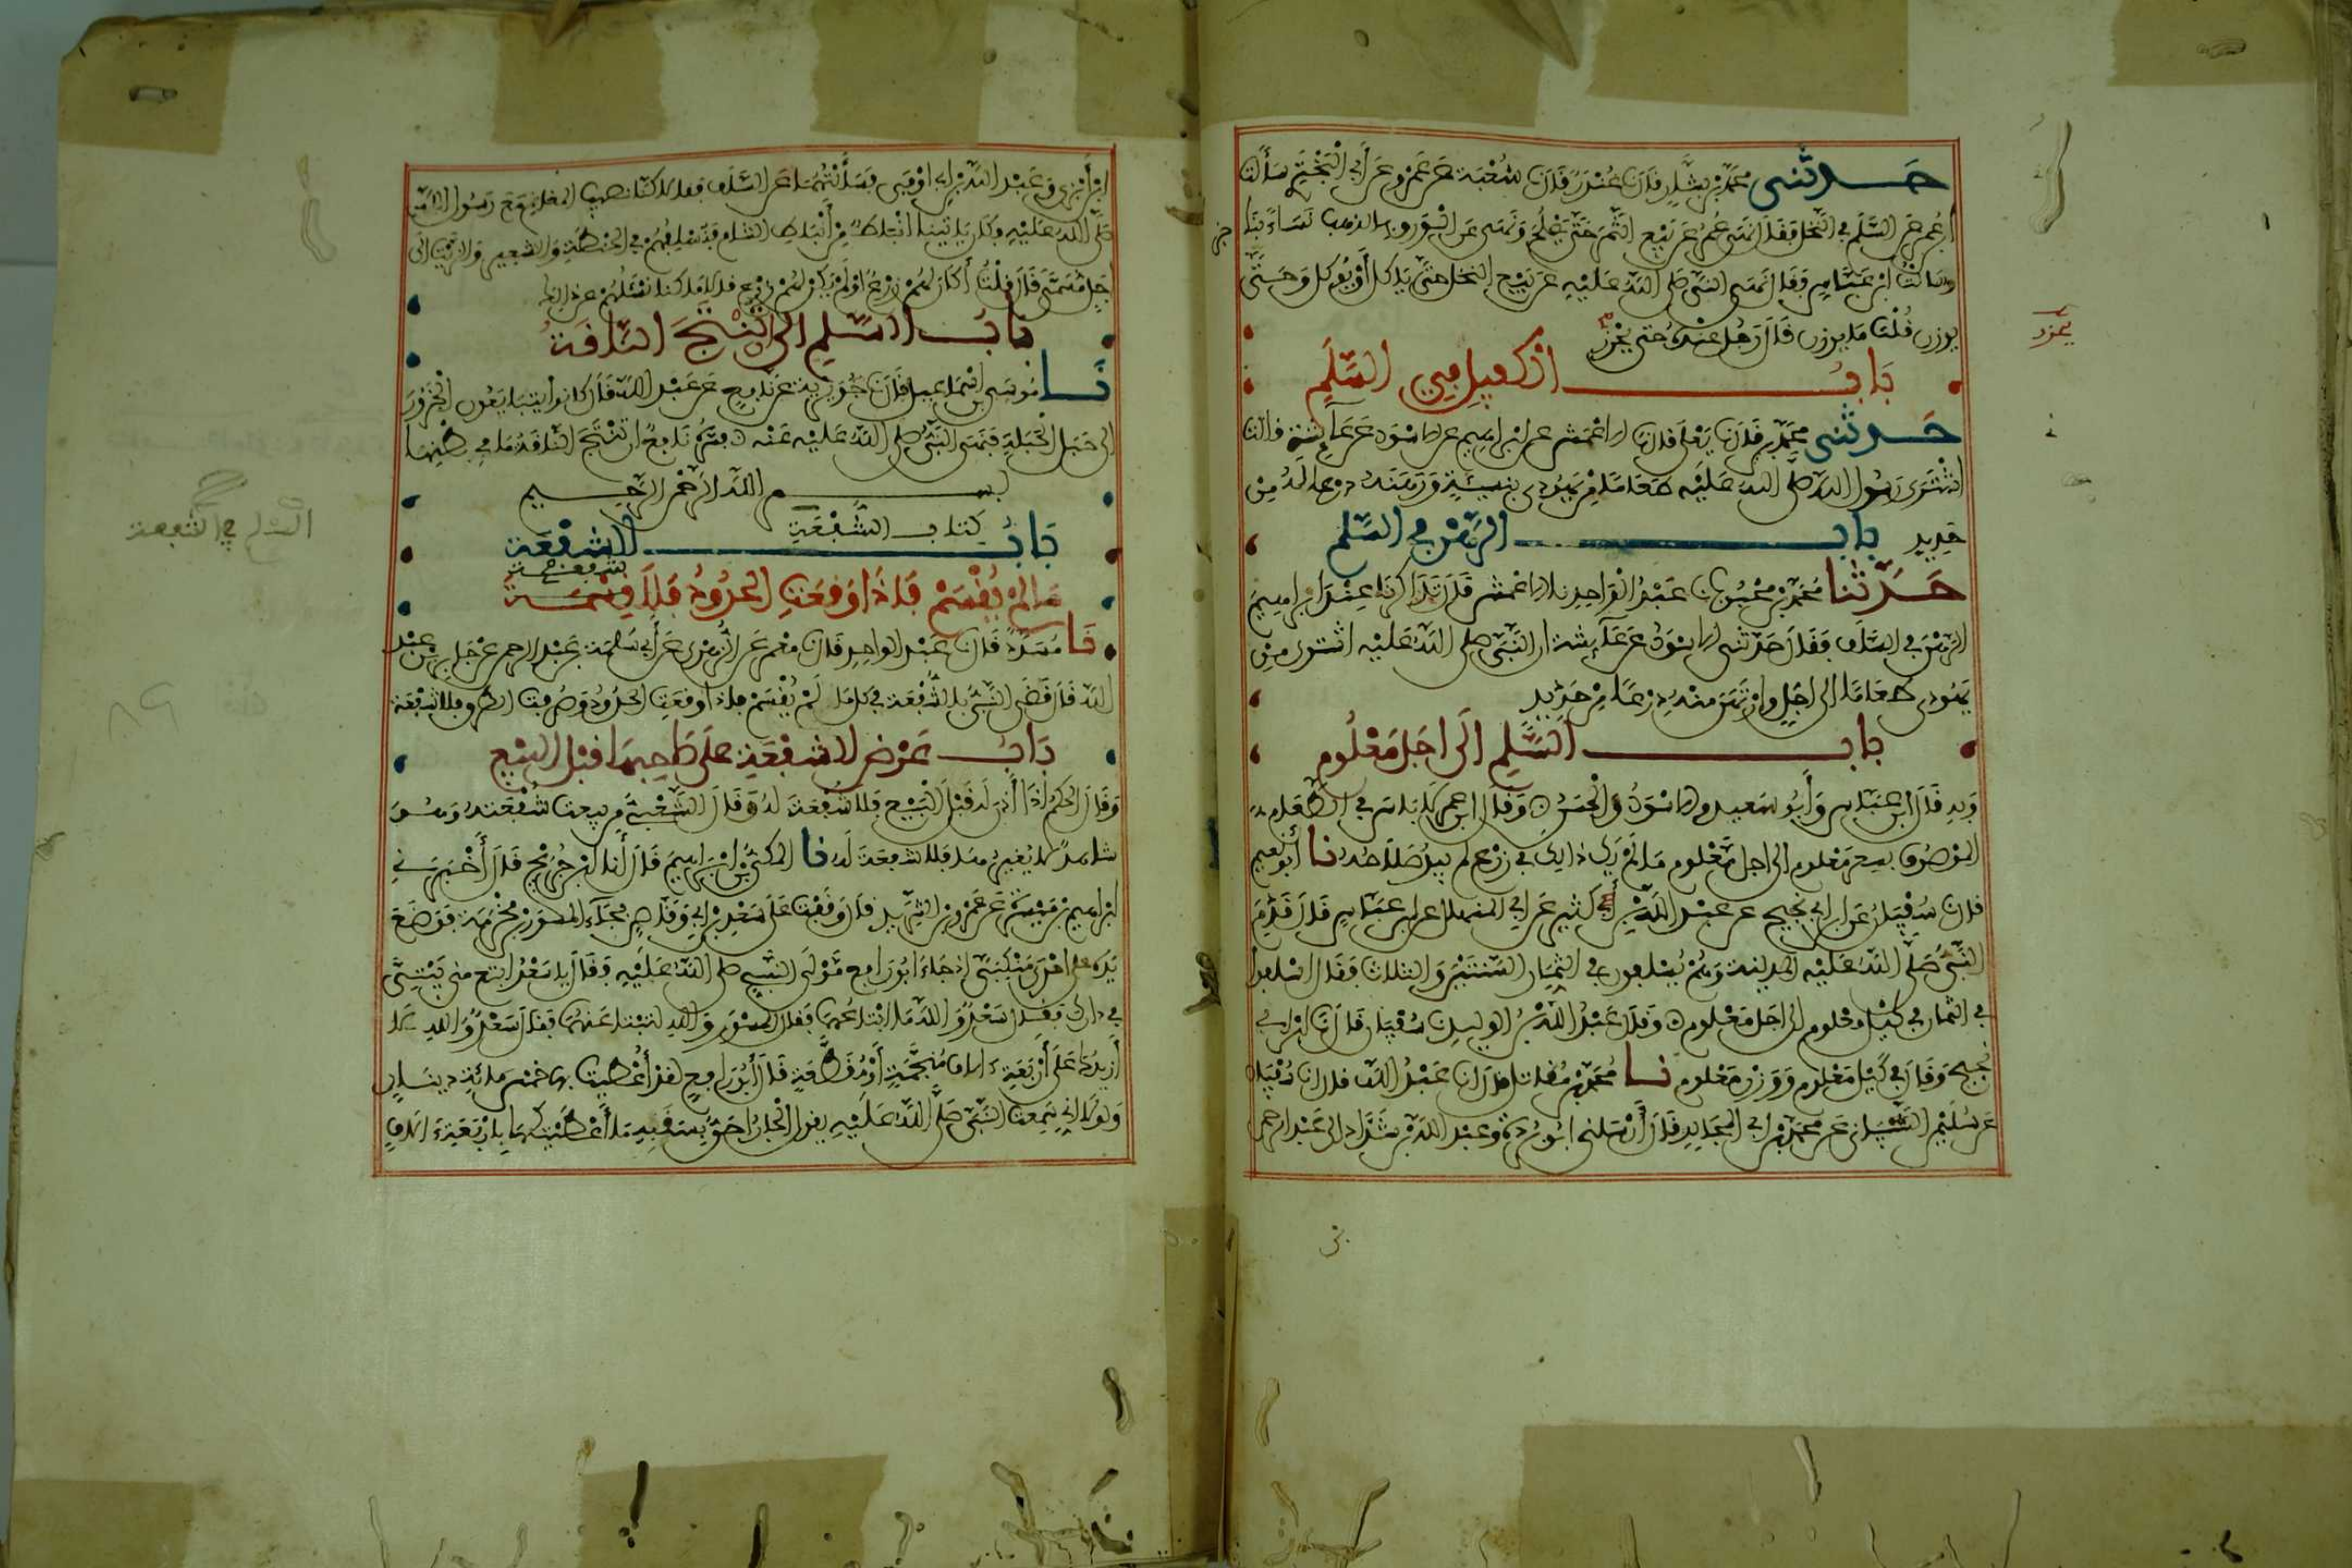 حدثنى محمد بن بشار قال نا غندر قال نا شعبة عن عمرو عن أبي البختري سألت
ابن عمر عن السلم في النخل فقال نهى عمر عن بيع الثمر حتى يصلح ونهى عن الورق بالذهب نساء بنا
جز
وسالت ابن عباس فقال نهى النبي صلى الله عليه عن بيع النخل حتى ياكل أو يوكل وحتى
يوزن قلت ما يوزن قال رجل عنده حتى يحرز
يحزر
باب الكفيل في السلم
حدثنى محمد قال نا يعلى قال نا الاعمش عن ابراهيم عن الاسود عن عائشة قالت
اشترى رسول الله صلى الله عليه طعاما من يهودي بنسيئة ورهنه درعا له من
حديد باب الرهن في السلم
حدثنا محمد بن محبوب نا عبد الواحد نا الاعمش قال تذاكرنا عند ابراهيم
الرهن في السلف فقال حدثنى الاسود عن عائشة ان النبي صلى الله عليه اشترى من
يهودي طعاما الى اجل وارتهن منه درعا من حديد
باب السلم الى اجل معلوم
وبه قال ابن عباس وأبو سعيد والاسود والحسن وقال ابن عمر لا باس في الطعام
الموصوف بسعر معلوم الى اجل معلوم ما لم يك ذلك في زرع لم يبد صلاحه نا أبو نعيم
قال نا سفيان عن ابن ابي نجيح عن عبد الله بن أبي كثير عن ابي المنهال عن ابن عباس قال قدم
النبي صلى الله عليه المدينة وهم يسلفون في الثمار السنتين والثلاث فقال اسلفوا
في الثمار في كيل معلوم الى اجل معلوم وقال عبد الله بن الوليد نا سفيان قال نا ابن ابي
نجيح وقال في كيل معلوم ووزن معلوم نا محمد بن مقاتل قال انا عبد الله قال انا سفيان
عن سليمن الشيباني عن محمد بن ابي المجالد قال أرسلني ابو بردة وعبد الله بن شداد الى عبد الرحمن
بن
ابن أبزى وعبد الله بن ابي اوفى فسألتهما عن السلف فقالا كنا نصيب المغانم مع رسول الله
صلى الله عليه وكان ياتينا انباط من أنباط الشام فنسلفهم في الحنطة والشعير والزيت الى
اجل مسمى قال قلت أكان لهم زرع أو لم يكن لهم زرع قالا ما كنا نسئلهم عن ذلك
باب السلم الى ان تنتج الناقة
نا موسى بن اسماعيل قال نا جويرية عن نافع عن عبد الله قال كانوا يتبايعون الجزور
الى حبل الحبلة فنهى النبي صلى الله عليه عنه فسره نافع ان تنتج الناقة ما في بطنها
بسم الله الرحمن الرحيم
كتاب الشفعة
باب الشفعة
السلم في الشفعة
ما لم يقسم فاذا وقعت الحدود فلا شفعة
نا مسدد قال نا عبد الواحد قال نا معمر عن الزهري عن أبي سلمة بن عبد الرحمن عن جابر بن عبد
الله قال قضى النبي بالشفعة في كل مال لم يقسم فاذا وقعت الحدود وصرفت الطرق فلا شفعة
باب عرض الشفعة على صاحبها قبل البيع
وقال الحكم اذا أذن له قبل البيع فلا شفعة له وقال الشعبي من بيعت شفعته وهو
شاهد لا يغيرها فلا شفعة له نا المكي بن ابراهيم قال أنا ابن جريج قال أخبرني
ابراهيم بن ميسرة عن عمرو بن الشريد قال وقفت على سعد بن ابي وقاص فجاء المسور بن مخرمة فوضع
يده على احدى منكبي اذ جاء ابو رافع مولى النبي صلى الله عليه فقال يا سعد ابتع مني بيتي
في دارك فقال سعد والله ما ابتاعهما فقال المسور والله لتبتاعنهما فقال سعد والله لا
أزيدك على أربعة ءالاف منجمة أو مقطعة قال أبو رافع لقد أعطيت بها خمس مائة دينار
ولولا اني سمعت النبي صلى الله عليه يقول الجار احق بسقبه ما أعطيتكها باربعة ءالاف